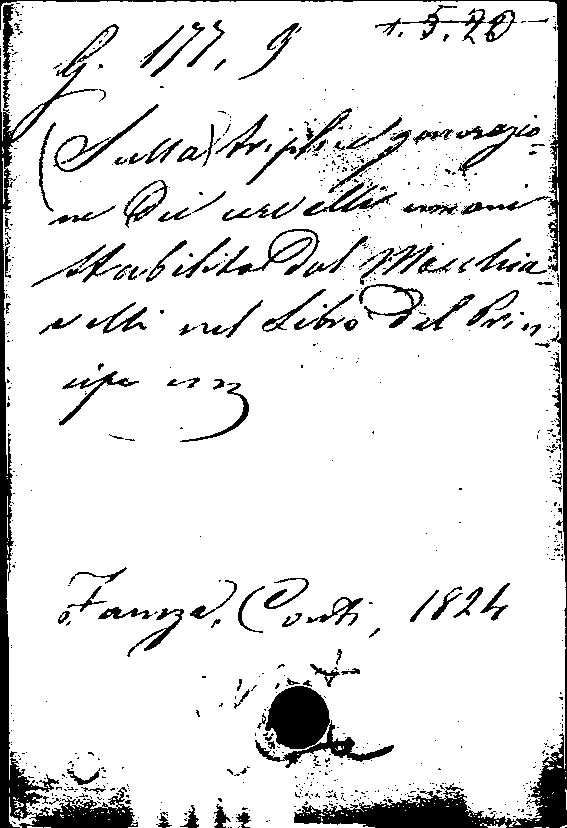 1. 5. 20
G. 177, 9
(Sulla) triplice generazio=
ne dei cervelli umani
stabilita dal Macchia-
velli nel Libro del Prin-
cipe
Faenza, Conti, 1824